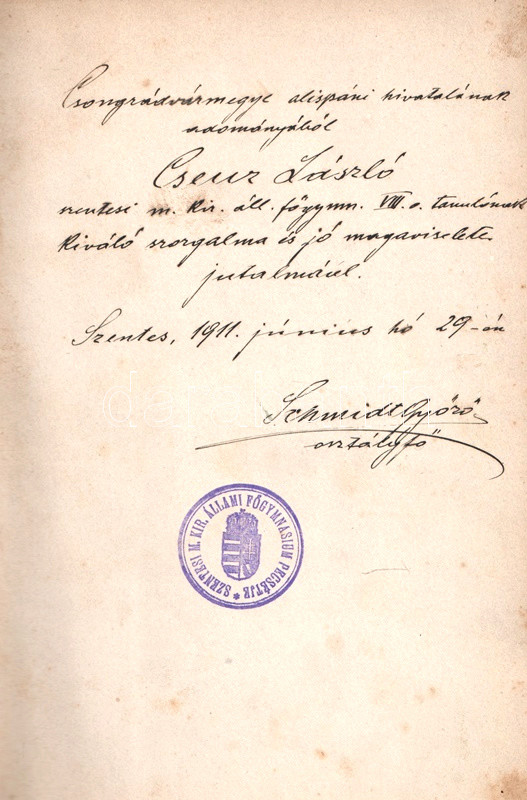 Csongrádvármegye alispáni hivatalának
adományából
Cseuz László
szentesi m. kir. áll. főgymn. VIII. o. tanulónak
kiváló szorgalma és jó magaviselete
jutalmáúl.
Szentes, 1911. június hó 29-én
Schmidt Győző
osztályfő
SZENTESI M. KIR. ÁLLAMI FŐGYMNASIUM PECSÉTJE *